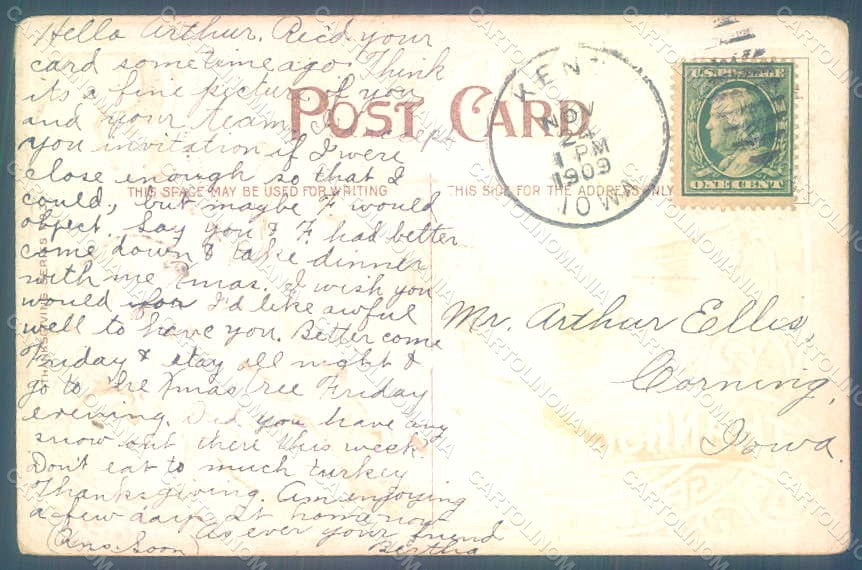 Hello Arthur. Rec'd your
card sometime ago. Think
its a fine picture of you
and your team. I'd accept
you invitation if I were
close enough so that I
could, but maybe F. would
object. Say you & F. had better
come down & take dinner
with me Xmas. I wish you
would for I'd like awful
well to have you. Better come
Friday & stay all night &
go to the Xmas tree Friday
evening. Did you have any
snow out there this week
Don't eat to much turkey
Thanksgiving. Am enjoying
a few days at home now
As ever your friend
(Ans. Soon) Bertha
POST CARD
THIS SPACE MAY BE USED FOR WRITING
THIS SIDE FOR THE ADDRESS ONLY
THANKSGIVING SERIES
KENT
NOV
1 PM
1909
IOWA
ONE CENT
Mr. Arthur Ellis,
Corning,
Iowa.
CARTOLINOMANIA